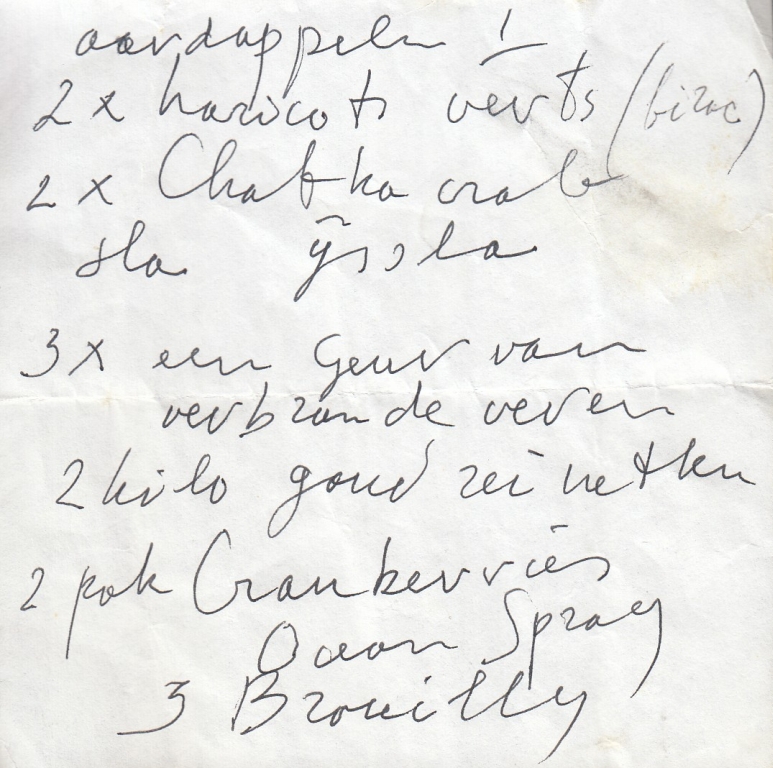 aardappelen !
2 x haricots verts (bizac)
2 x Chatka crab
sla ijssla
3 x een geur van
verbrande veren
2 kilo goud reinetten
2 pak Cranberries
Ocean Spray
3 Brouilly